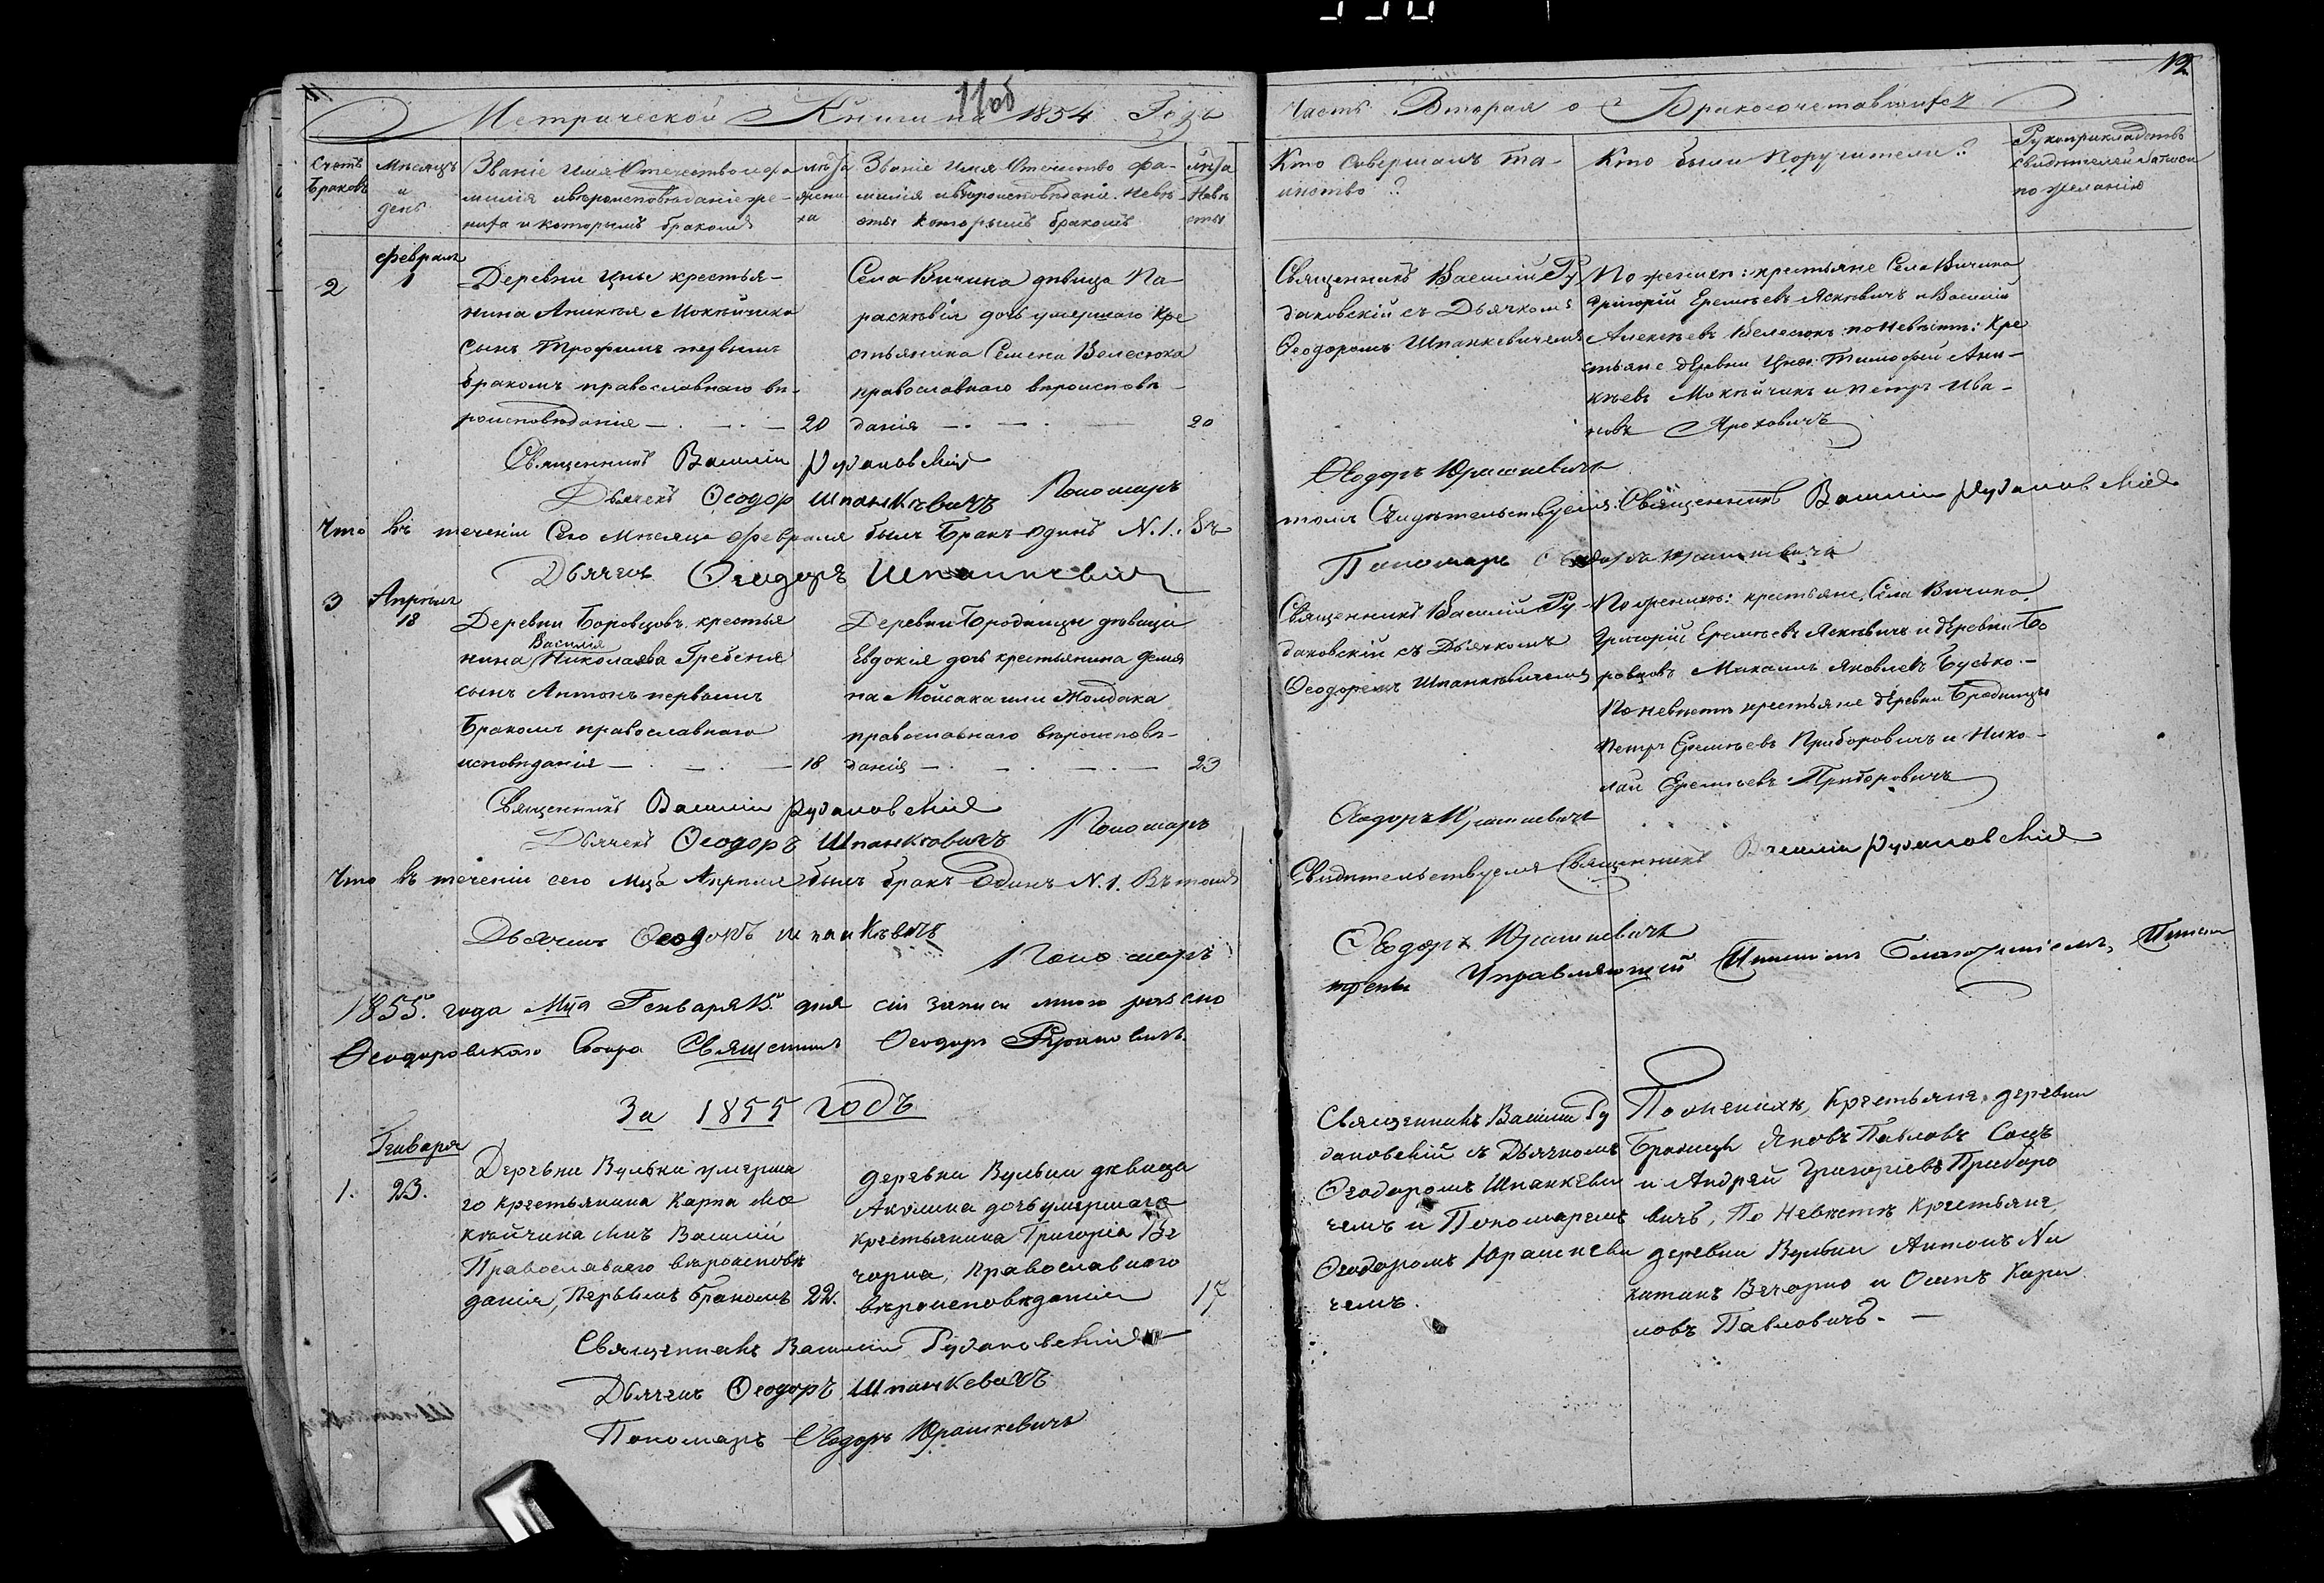 11
11об
Метрической Книги на 1854 Годъ
Счетъ Браковъ
Мѣсяцъ и день
Званіе Имя Отечество и фа-
милія и вѣроисповѣданіе же-
ниха и которымъ бракомъ
лѣта жениха
Званіе Имя Отечество фа-
милія и вѣроисповѣданіе невѣ-
сты которымъ бракомъ
лѣта Невѣсты
февраля
2
1
Деревни Цны крестья-
нина Аникея Мокѣйчика
сынъ Трофимъ первымъ
бракомъ православнаго вѣ-
роисповѣданія
20
Села Вичина дѣвица Па-
раскѣвія дочь умершаго кре
стьянина Семена Велесюка
православнаго вѣроисповѣ-
данія
20
Священникъ Василій Рудаковскій
Дьячекъ Ѳеодоръ Шпанкѣвичъ Пономарь
Что въ теченіи Сего Мѣсяца февраля былъ Бракъ одинъ N.1. Въ
Дьячекъ Ѳеодоръ Шпанкевичъ
3
Апрѣля
18
Деревни Боровцовъ крестья
Василія
нина Николаева Гребеня
сынъ Антонъ первымъ
Бракомъ православнаго
исповѣданія
18
Деревни Бродницы дѣвица
Евдокія дочь крестьянина Демя
на Мойсака или Жолдака
православнаго вѣроисповѣ-
данія
23
Священникъ Василій Рудаковскій
Дьячекъ Ѳеодоръ Шпанкѣвичъ Пономарь
Что въ теченіи сего Мца Апрѣля былъ бракъ Одинъ N.1. Въ томъ
Дьячекъ Ѳеодоръ Шпанкѣвичъ
Пономарь
1855. года Мца Генваря 15. дня сіи записи мною розсмо
Ѳеодоровскаго Собора Священникъ Ѳеодоръ
За 1855 годъ
Генваря
1.
23.
Деревни Вульки умерша
го крестьянина Карпа Мо
кѣйчика сынъ Василій
Православнаго вѣроисповѣ
данія, Первымъ бракомъ
22.
деревни Вульки дѣвица
Акилина дочь умершаго
крестьянина Григорія Ве
чорка, Православнаго
вѣроисповѣданія
17
Священникъ Василій Рудаковскій
Дьячекъ Ѳеодоръ Шпанкевичъ
Пономарь Ѳеодоръ Юрашкевичъ
12
Часть Вторая о Бракосочетавшихся
Кто совершалъ Та-
инство?
Кто были Поручители?
Рукоприкладство
свидѣтелей записи
по желанію
Священникъ Василій Ру
даковскій съ Дьячкомъ
Ѳеодоромъ Шпанкевичемъ
По женихѣ: крестьяне Села Вичина
Григорій Еремѣевъ Яскевичъ и Василій
Алексѣевъ Велесюкъ по невѣстѣ: Кре
стьяне деревни Цны Тимофей Ани-
кѣевъ Мокѣйчикъ и Петръ Ива-
новъ Ярохович
Ѳеодоръ Юрашкевичъ
томъ Свидѣтельствуемъ. Священникъ Василій Рудаковскій
Пономарь Ѳеодоръ Юрашкевичъ
Священникъ Василій Ру
даковскій съ Дьячкомъ
Ѳеодоромъ Шпанкѣвичемъ
По женихѣ: крестьяне Села Вичина
Григорій Еремѣевъ Яскевичъ и деревни Бо
ровцовъ Михаилъ Яковлевъ Бусько.-
По невѣстѣ крестьяне деревни Бродницы
Петръ Еремѣевъ Приборовичъ и Нико-
лай Еремѣевъ Приборовичъ
Ѳеодоръ Юрашкевичъ
Свидѣтельствуемъ Священникъ Василій Рудаковскій
Ѳеодоръ Юрашкевичъ
трены Управляющій Пинскимъ Благочиніемъ, Пинска
Священникъ Василій Ру
даковскій съ Дьячкомъ
Ѳеодоромъ Шпанкеви
чемъ и Пономаремъ
Ѳеодоромъ Юрашкеви
чемъ.
По женихѣ, Крестьяне деревни
Бродницы Яковъ Павловъ Сацъ
и Андрей Григорьевъ Приборо
вичъ, По Невѣстѣ Крестьяне
деревни Вульки Антонъ Ни
китинъ Вечорко и Осипъ Карп
ловъ Павловичъ.-